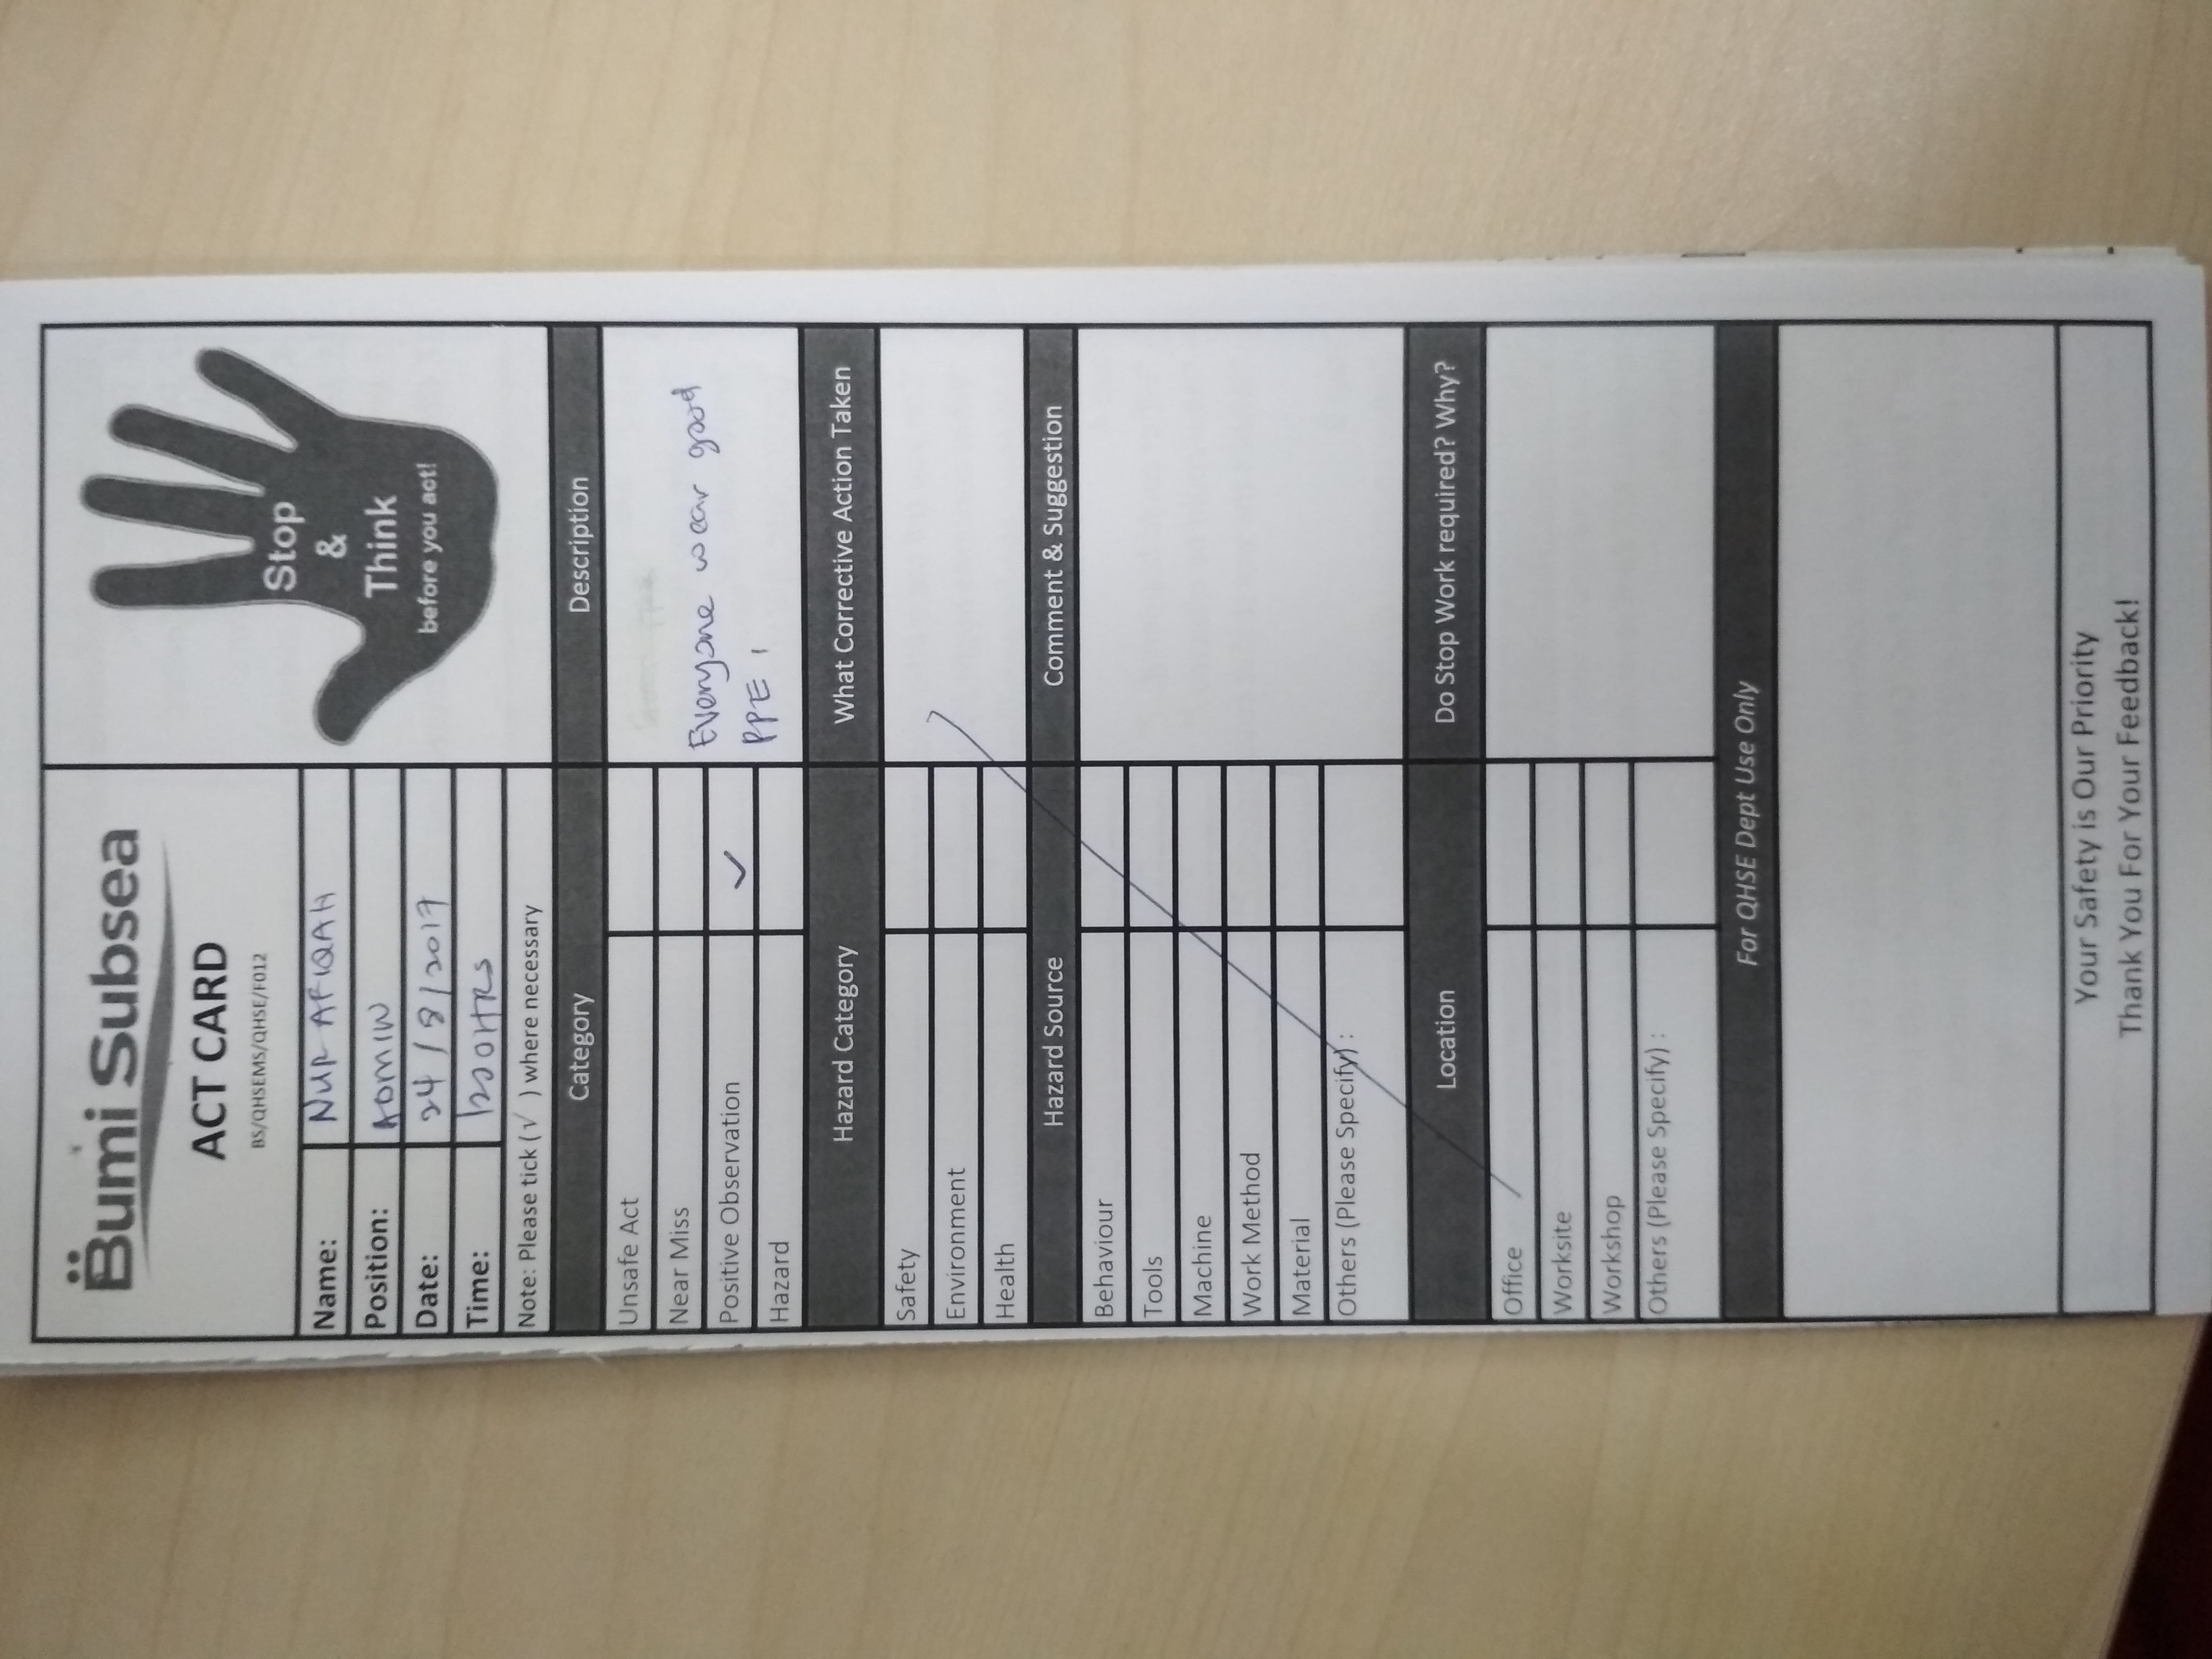 Bumi Subsea
ACT CARD
BS/QHSEMS/QHSE/F012
Stop
&
Think
before you act!
Name: NUR AFIQAH
Position: ADMIN
Date: 24/8/2017
Time: 1200HRS
Note: Please tick (√ ) where necessary
Category Description
Unsafe Act
Near Miss
Positive Observation ✓
Hazard
Everyone wear good
PPE
Hazard Category What Corrective Action Taken
Safety
Environment
Health
Hazard Source Comment & Suggestion
Behaviour
Tools
Machine
Work Method
Material
Others (Please Specify) :
Location Do Stop Work required? Why?
Office
Worksite
Workshop
Others (Please Specify) :
For QHSE Dept Use Only
Your Safety is Our Priority
Thank You For Your Feedback!